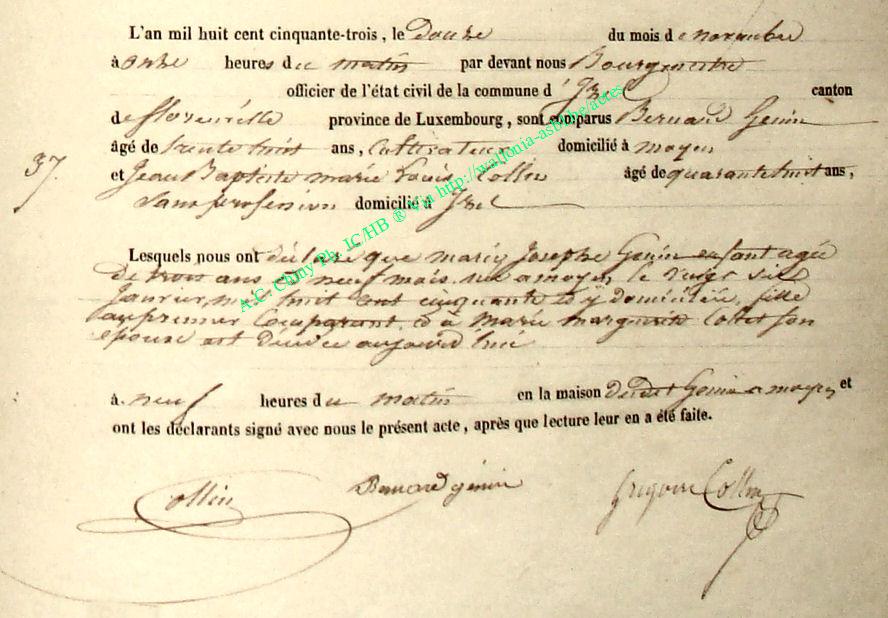 L'an mil huit cent cinquante-trois, le douze du mois de novembre
à onze heures du matin par devant nous Bourgmestre
officier de l'état civil de la commune d'Izel canton
de florenville province de Luxembourg, sont comparus Bernard Genin
âgé de trente huit ans, Cultivateur domicilié à moyen
37
et Jean Baptiste marie Louis Collin âgé de quarante huit ans,
Sans profession domicilié à Izel
Lesquels nous ont déclaré que marie Josephe Genin enfant agée
de trois ans et neuf mois née a moyen le vingt six
Janvier mil huit cent cinquante et y domiciliée, fille
au premier Comparant et à marie marguerite Collet son
épouse est décédée aujourd'hui
à neuf heures du matin en la maison dudit Genin a moyen et
ont les déclarants signé avec nous le présent acte, après que lecture leur en a été faite.
Collin Bernard génin Grégoire Collin
A.C. Chiny Ph. IC/HB ® Via http://wallonia-asbl.be/actes